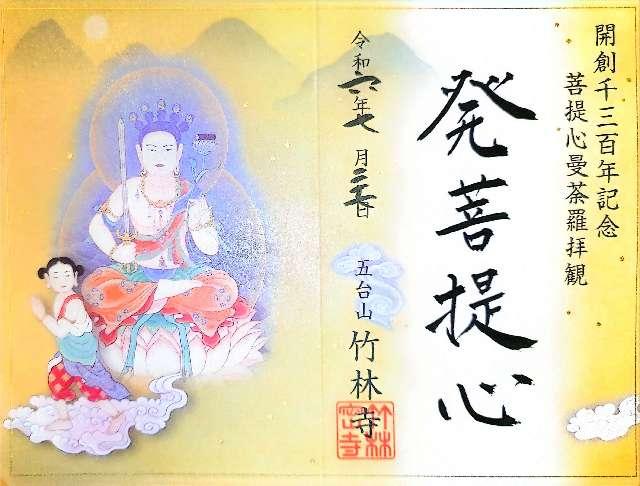 開創千三百年記念
菩提心曼荼羅拝観
発菩提心
令和六年七月二十七日
五台山 竹林寺
竹林
密寺